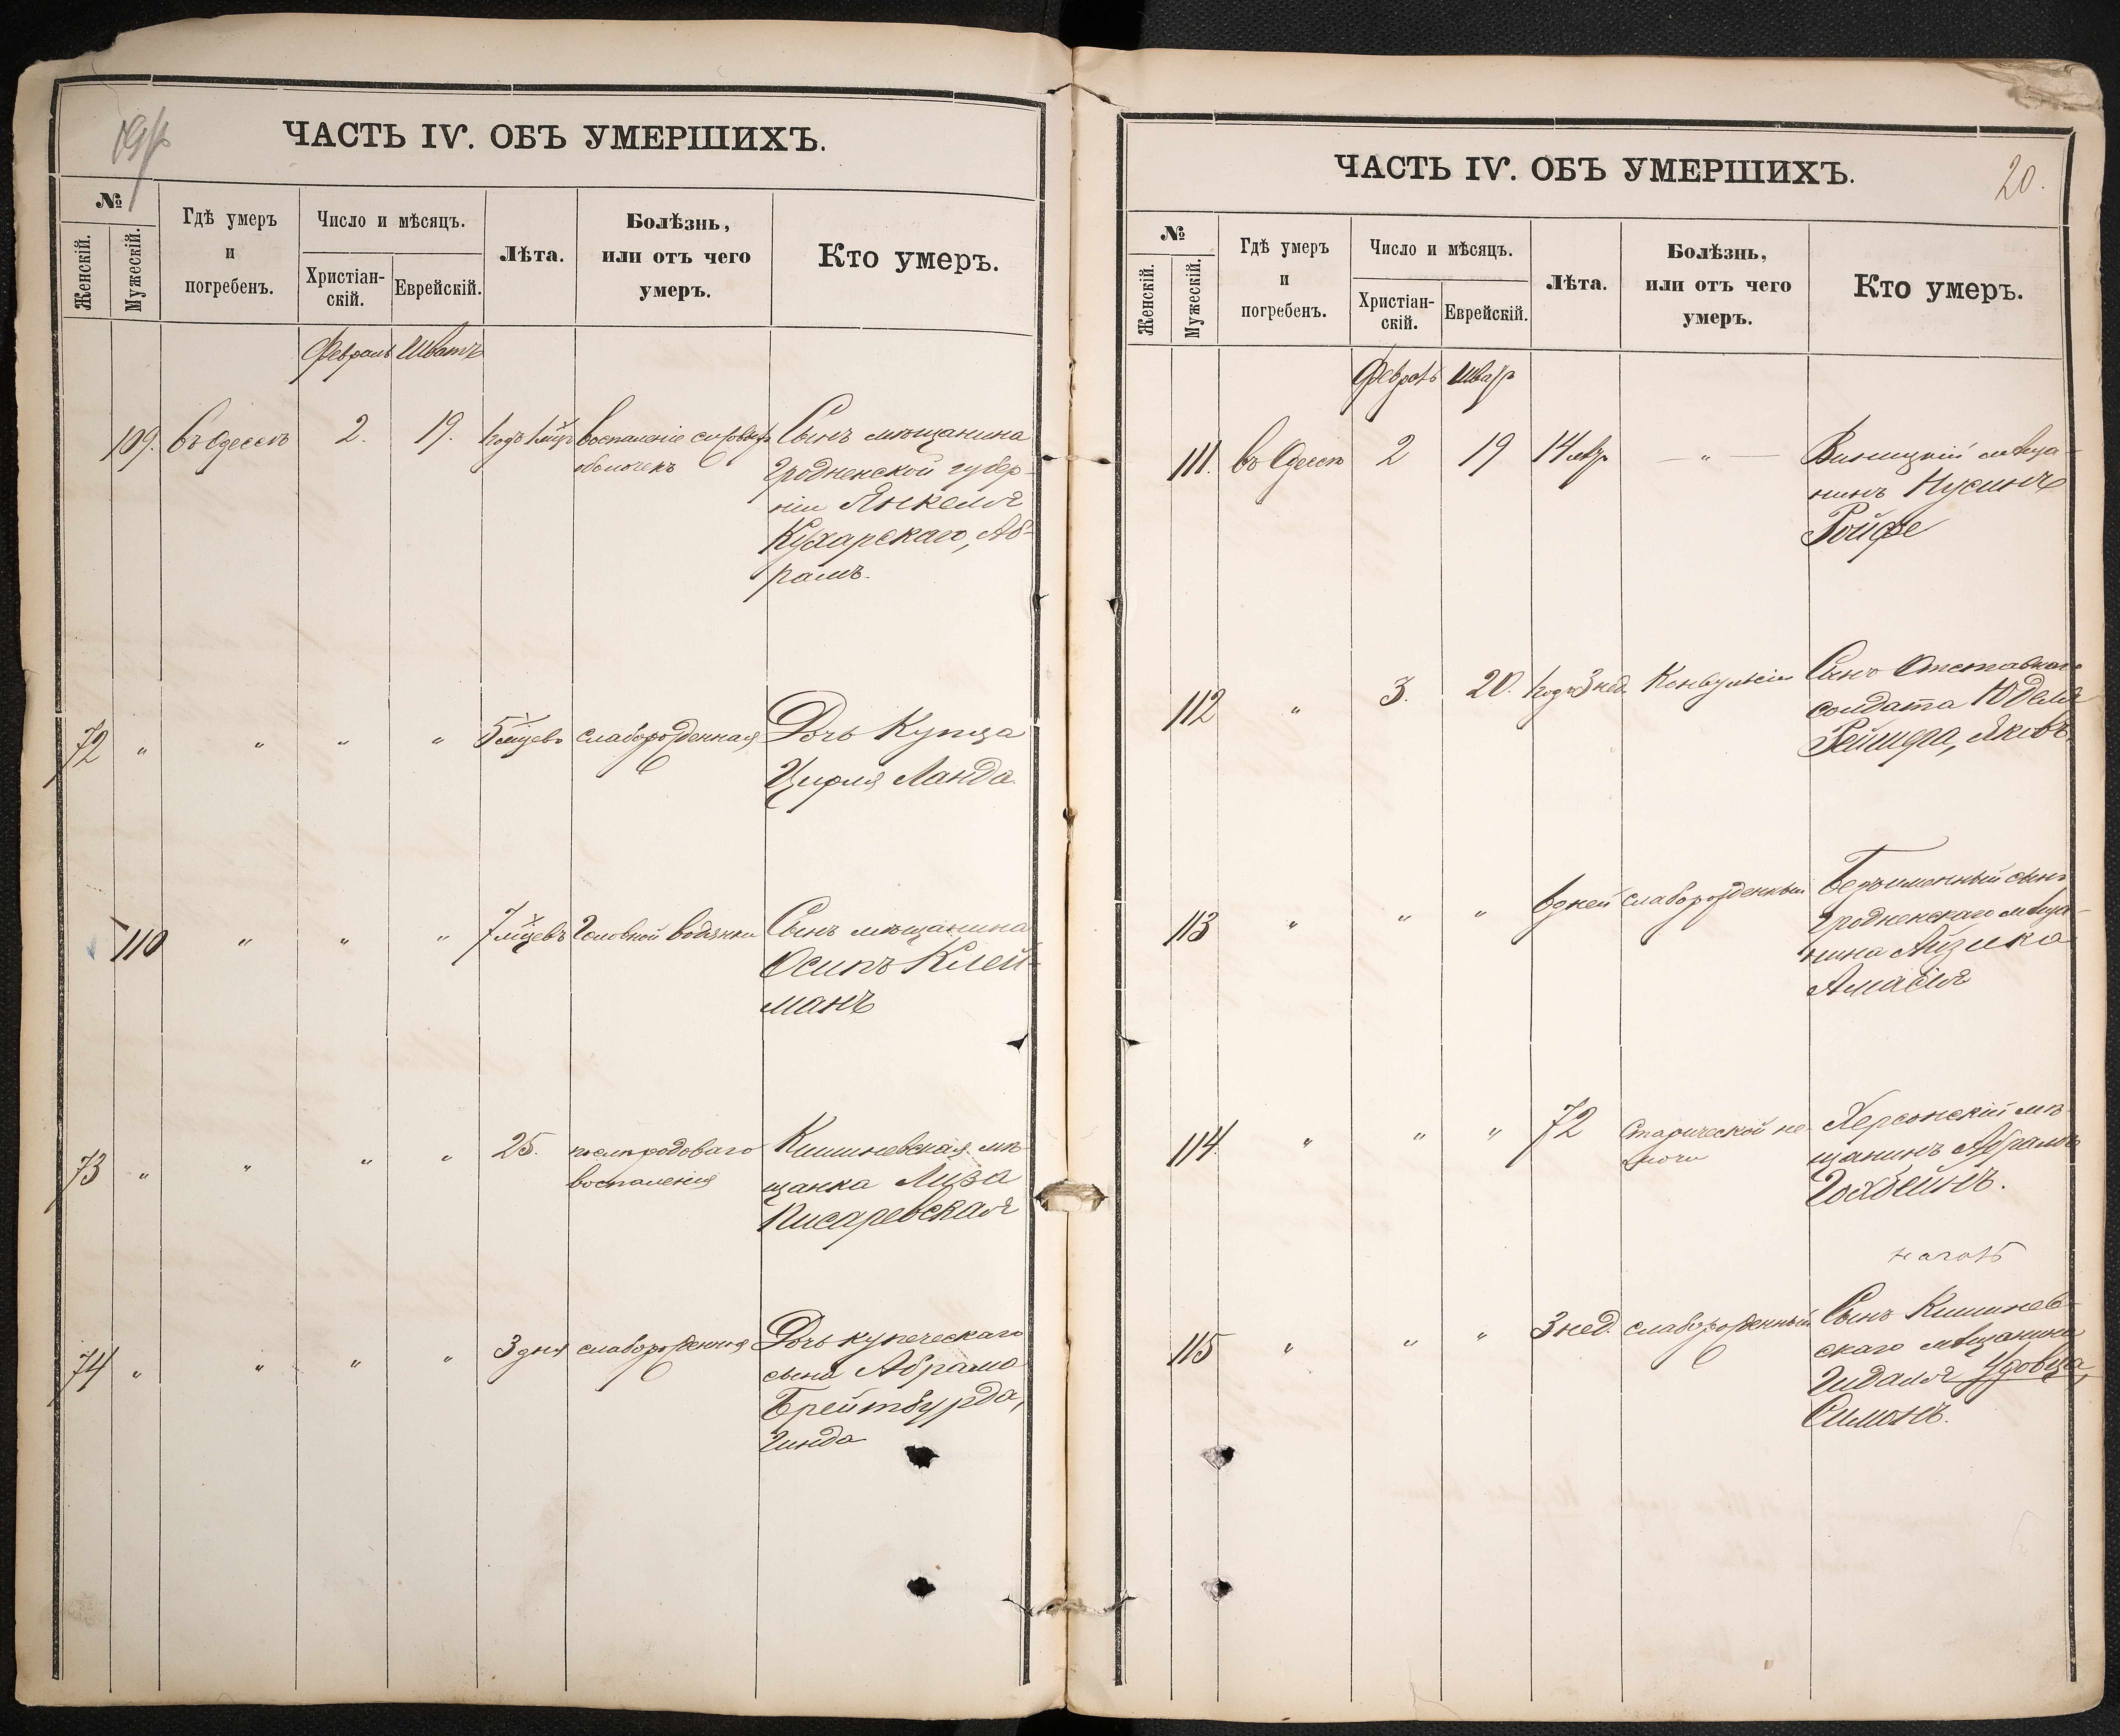 ЧАСТЬ IV. ОБЪ УМЕРШИХЪ.
№
Женскій.
Мужескій.
Гдѣ умеръ
и
погребенъ.
Число и мѣсяцъ.
Христіан-
скій.
Еврейскій.
Лѣта.
Болѣзнь,
или отъ чего
умеръ.
Кто умеръ.
Февраль Шватъ
109. въ Одессѣ 2. 19. 1 годъ 1 мѣц воспаленіе
оболочекъ
Сынъ мѣщанина
Гродненской губер-
ніи Янкеля
Кухарскаго, Аб-
рамъ.
72 " " " " 5 мѣцевъ слаборожденная
Дочь Купца
Цифля Ланда.
110 " " " 7 мѣцевъ Головной водянки
Сынъ мѣщанина
Осипъ Клей-
манъ
73 " " " " 25. послеродоваго
воспаленія
Кишиневская мѣ-
щанка Лиза
Писаревская
74 " " " " 3 дня слаборожденная
Дочь купеческаго
сына Абрама
Брейтбурда,
Гинда
ЧАСТЬ IV. ОБЪ УМЕРШИХЪ.
20.
№
Женскій.
Мужескій.
Гдѣ умеръ
и
погребенъ.
Число и мѣсяцъ.
Христіан-
скій.
Еврейскій.
Лѣта.
Болѣзнь,
или отъ чего
умеръ.
Кто умеръ.
Февраль Шватъ
111. въ Одессѣ 2 19 14 — " —
Виницкій мѣща-
нинъ Нусинъ
Ройфе
112 " 3. 20. 1 годъ 3 нед. Конвульсіи
Сынъ Отставнаго
солдата Юделя
Яковъ
113 " " " 6 дней слаборожденный
Безъименный сынъ
Гродненскаго мѣща-
нина Айзика
Амасія
114. " " " 72 Старческой не-
мочи
Херсонскій мѣ-
щанинъ Абрамъ
Гохбейнъ.
115 " " " 3 нед. слаборожденный
Сынъ Кишинев-
скаго мѣщанина
Гидаля Удовца,
Симонъ.